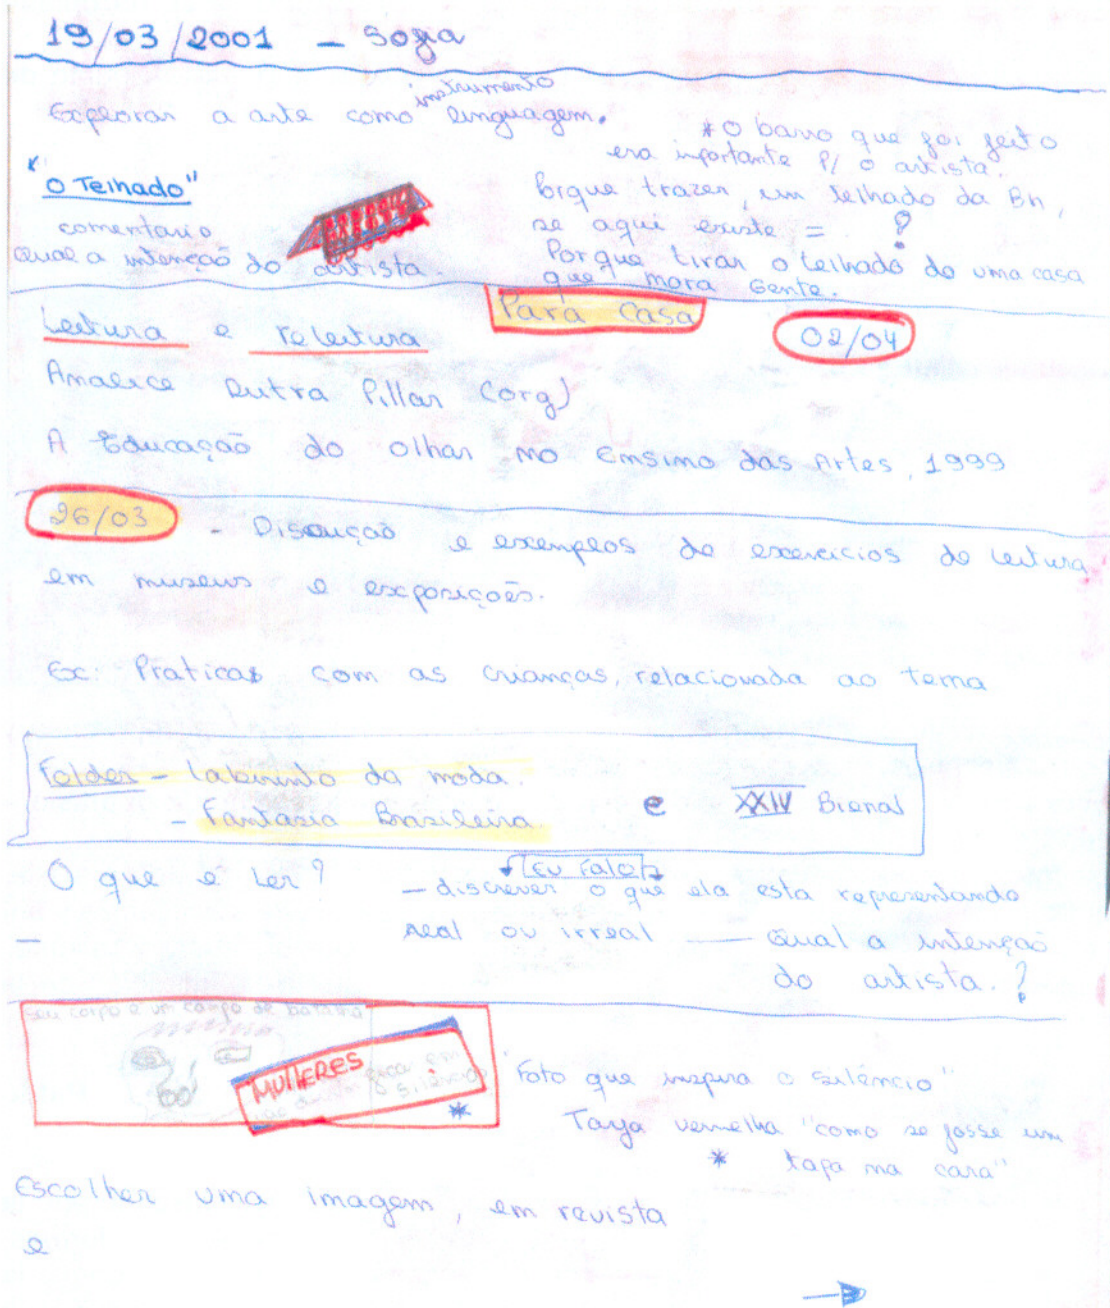 19/03/2001 - Sofia
instrumento
Explorar a arte como linguagem.
"O Telhado"
comentario
Qual a intenção do artista.
* O barro que foi feito
era inportante p/ o artista.
Porque trazer, um telhado da Bn,
se aqui existe = ?
Porque tirar o telhado de uma casa
que mora Gente.
Para Casa
02/04
Leitura e releitura
Analice Dutra Pillar (org)
A Educação do olhar no Ensino das Artes, 1999
26/03 - Discução e exemplos de exercicios de leitura
em museus e exposições.
Ex: Praticas com as crianças, relacionada ao tema
Folder - labirinto da moda.
- Fantasia Brasileira. e XXIV Bienal
O que é Ler?
Eu Falo
- discrever o que ela esta representando
real ou irreal — Qual a intenção
do artista. ?
seu corpo é um campo de batalha
MULHERES
*
"Foto que inspira o silêncio"
Tarja vermelha "como se fosse um
* tapa na cara"
Escolher uma imagem, em revista
e